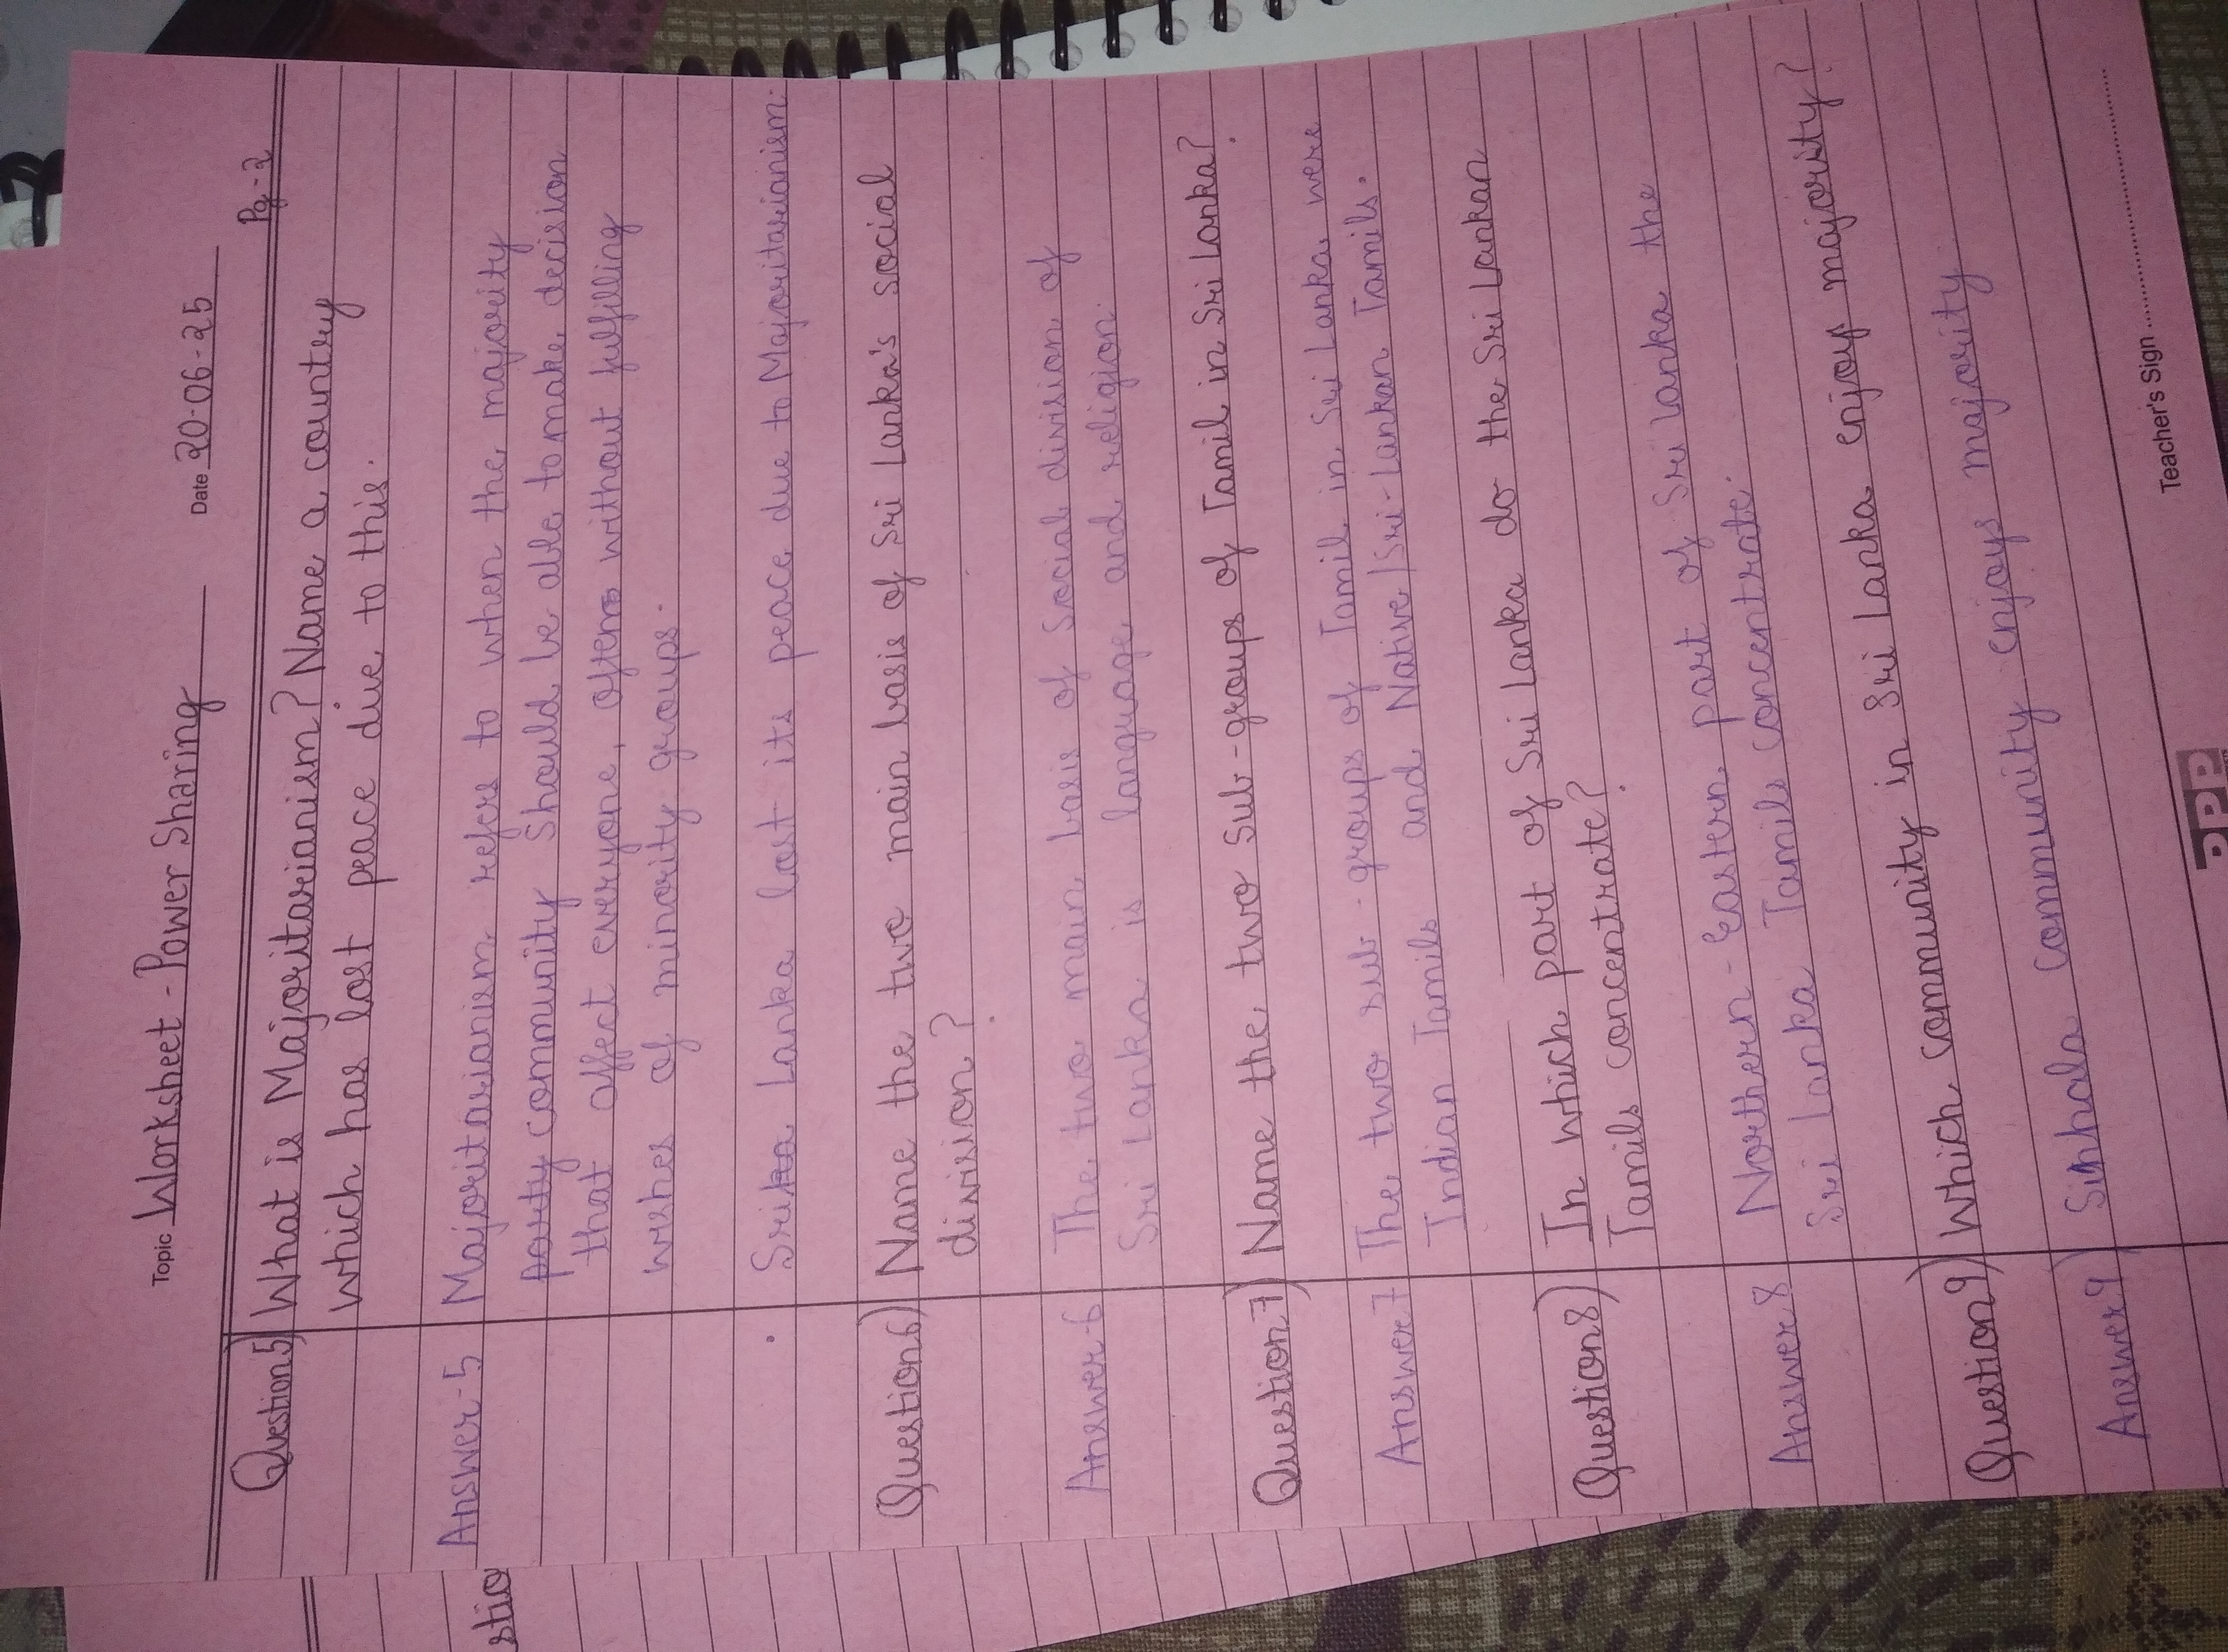 Topic Worksheet - Power Sharing Date 20-06-25
Pg-2
Question5) What is Majoritarianism? Name a country
which has lost peace due to this.
Answer-5 Majoritarianism refers to when the majority
party community should be able to make decision
that affect everyone, often without fulfilling
wishes of minority groups.
Srika Lanka lost its peace due to Majoritarianism.
Question6) Name the two main basis of Sri Lanka's social
division?
Answer-6 The two main basis of social division of
Sri Lanka is language and religion.
Question7) Name the two sub-groups of Tamil in Sri Lanka?
Answer7 The two sub-groups of Tamil in Sri Lanka were
Indian Tamils and Native/Sri-Lankan Tamils.
Question8) In which part of Sri Lanka do the Sri Lankan
Tamils concentrate?
Answer8 Northern-Eastern part of Sri Lanka the
Sri Lanka Tamils concentrate.
Question9) Which community in Sri Lanka enjoy majority?
Answer9) Sinhala community enjoys majority
Teacher's Sign
stio